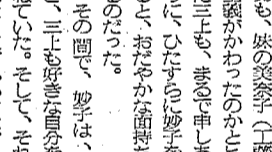 も、妹の美奈子（丁
義がかわったのかと
に三上も、まるで申しま
うに、ひたすらに妙子を
と、おだやかな面持を
のだった。
その間で、妙子は、
、三上も好きな自分を
ていた。そして、それ